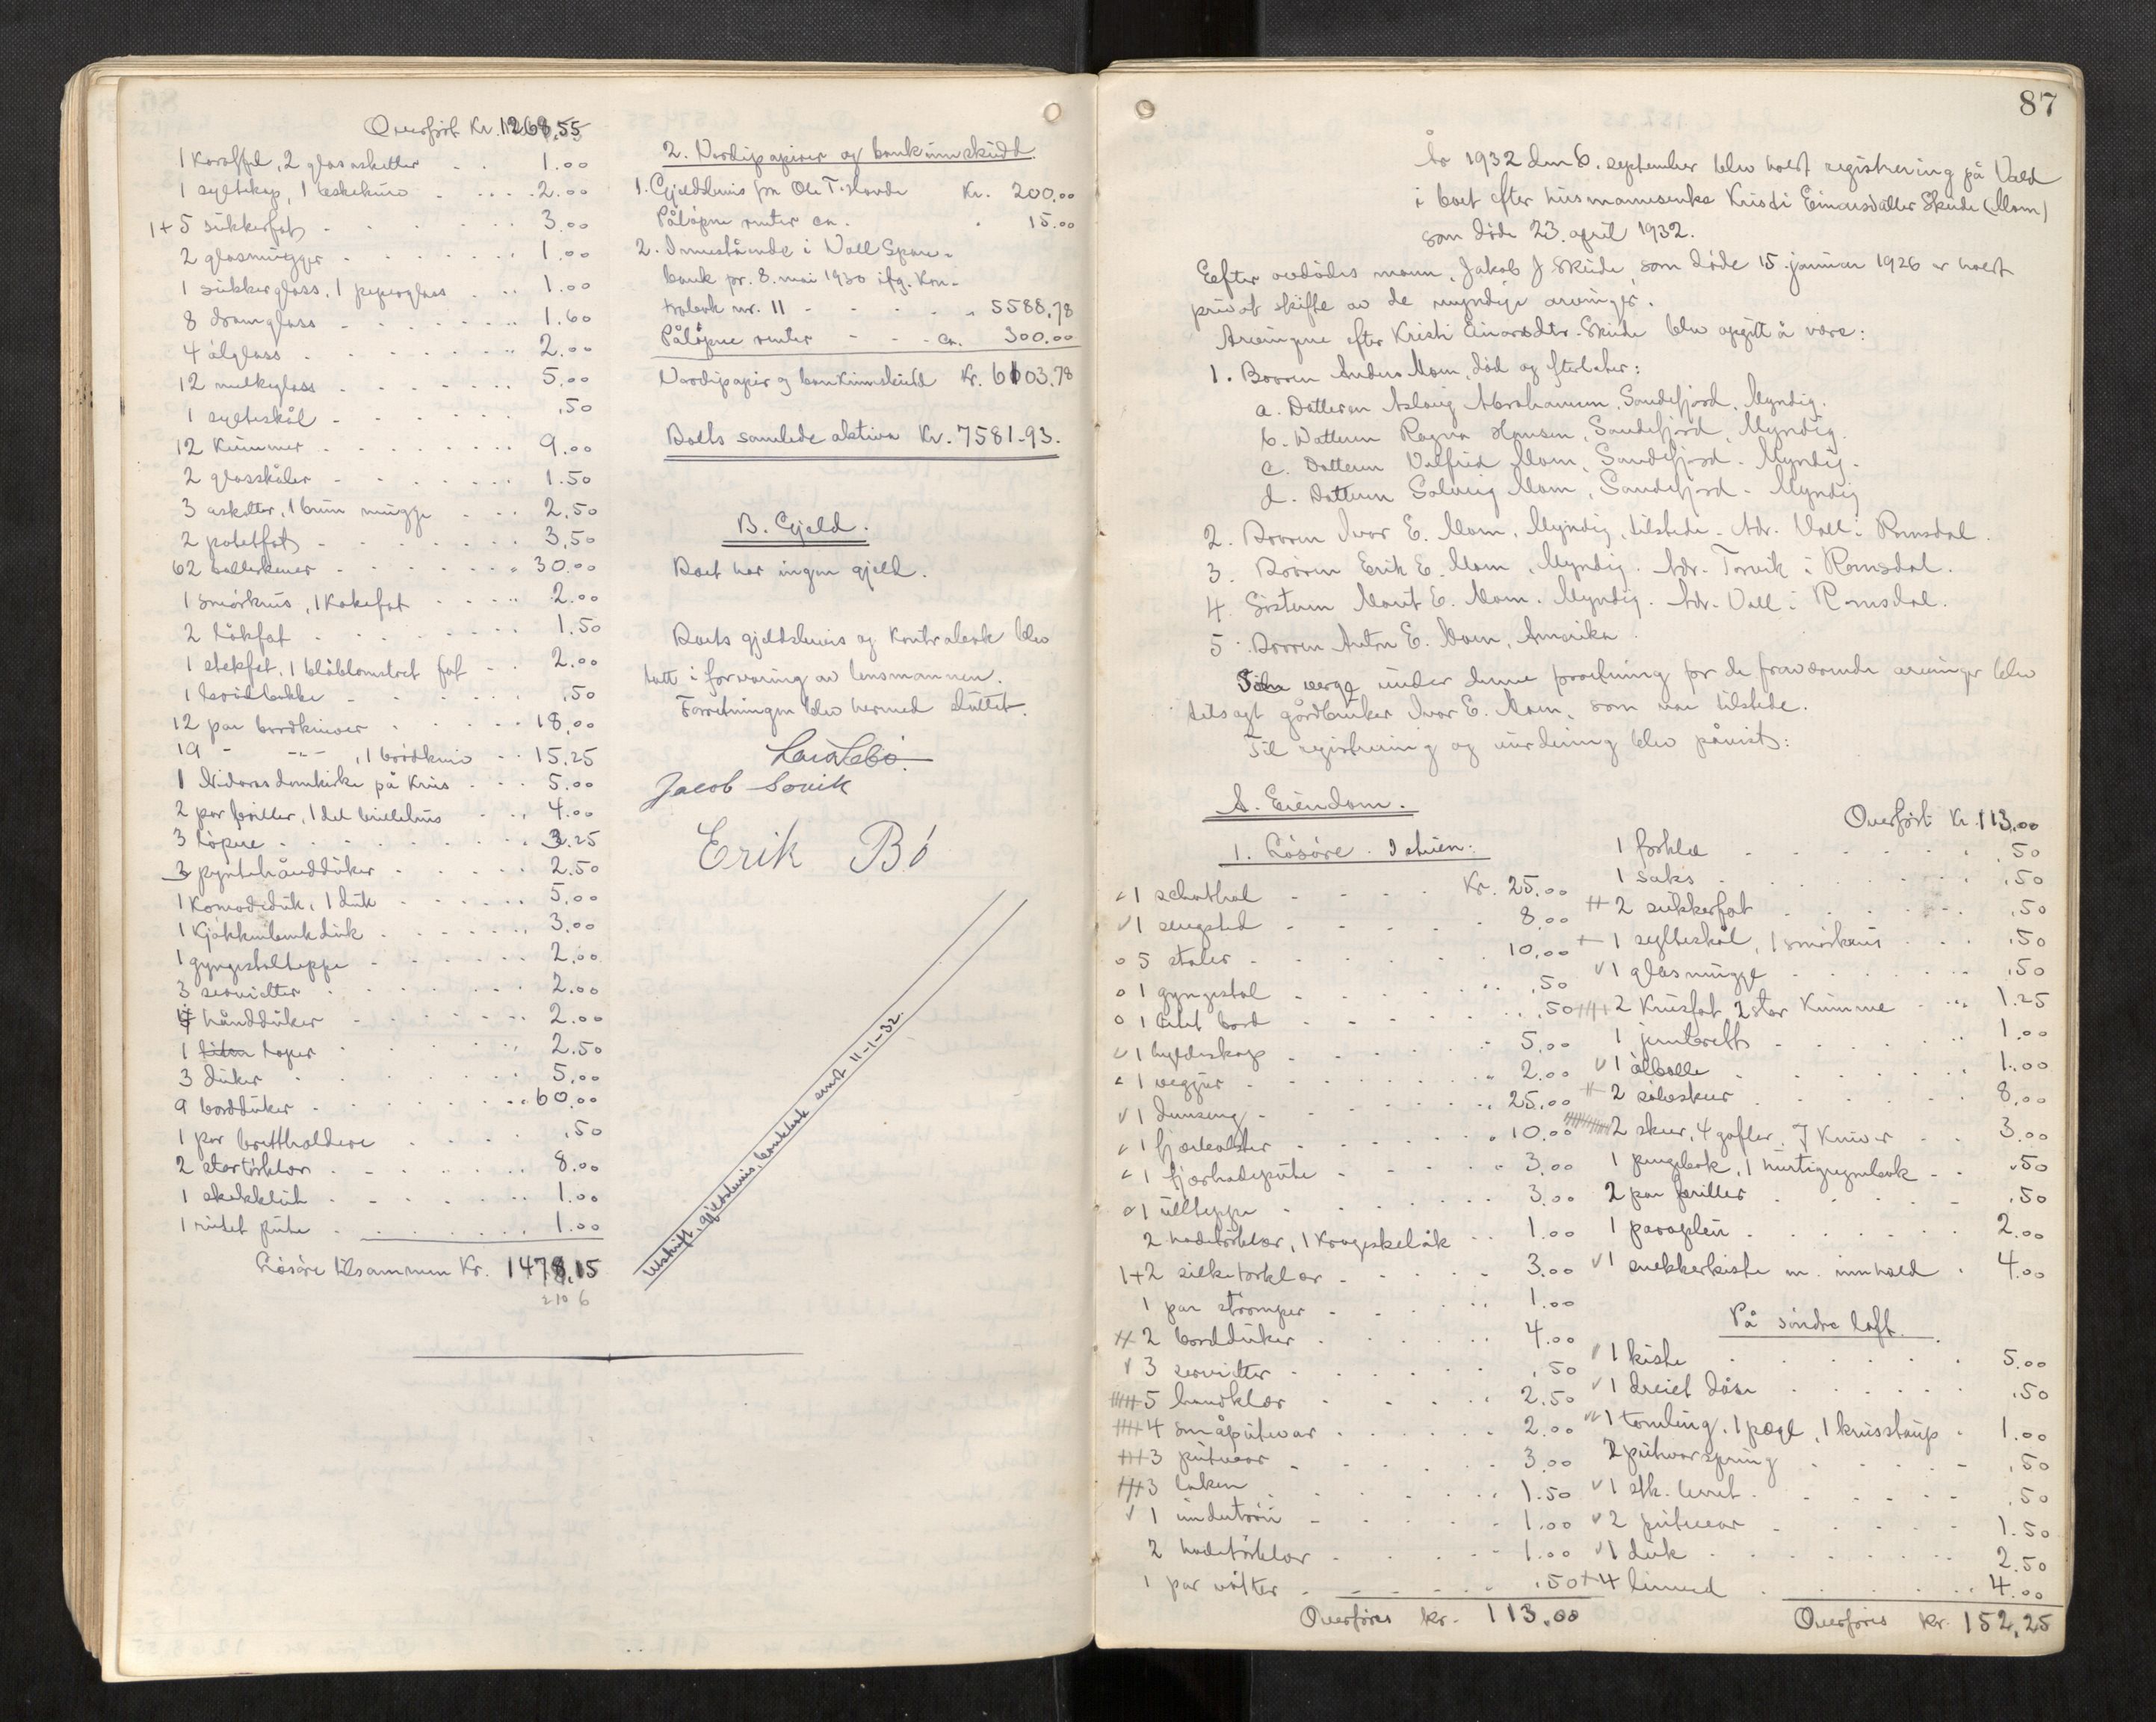 Overført Kr. 1268,55
1 karaffel, 2 glasasketter 1.00
1 syltekop, 1 2.00
1+5 sukkerfat 3.00
2 glasmugger 1.00
1 sukkerglass, 1 peperglass 1.00
8 dramglass 1.60
4 ølglass 2.00
12 melkeglass 5.00
1 sylteskål .50
12 kummer 9.00
2 glasskåler 1.50
3 asketter, 1 brun mugge 2.50
2 potetfat 3,50
62 tallerkener 30.00
1 smørkrus, 1 kakefat 2.00
2 kåkfat 1.50
1 stekfat, 1 blåblomstret fat 2.00
1 .50
12 par bordkniver 18,00
19 - -"- , 1 brødkniv 15.25
1 Nidarosdomkirke på krus 5.00
2 par briller, 1 del brillehus 4.00
3 løpere 3.25
3 pyntehåndduker 2.50
1 komodeduk, 1 duk 5.00
1 kjøkkenbenkduk 3.00
1 gyngestolteppe 2.00
3 servietter 2.00
4 håndduker 2.00
1 liten løper 2.50
3 duker 5.00
9 bordduker 60.00
1 par brettholdere .50
2 stortørklær 8.00
1 1.00
1 rutet pute 1.00
Løsøre tilsammen Kr. 1478,15
210 6
2. Verdipapirer og bankinnskudd
1. Gjeldsbevis fra Ole T. Hovde Kr. 200,00
Påløpne renter ca. 15.00
2. Innestående i Voll Spare-
bank pr. 8. mai 1930 ifg. Kon-
trabok nr. 11 5588,78
Påløpne renter ca. 300.00
Verdipapir og bankinnskudd Kr. 6103,78
Boets samlede aktiva Kr. 7581.93.
B. Gjeld.
Boet har ingen gjeld.
Boets gjeldsbevis og kontrabok blev
tatt i forvaring av lensmannen.
Forretningen blev hermed sluttet.
Jacob Sovik
Erik Bö
Utskrift, gjeldsbevis, bankbok sendt 11-1-32.
87
År 1932 den 6. september blev holdt registrering på Vold
i boet efter husmannsenke Kristi Einarsdatter Skeide (Moen)
som døde 23. april 1932.
Efter avdødes mann, Jakob J Skeide, som døde 15. januar 1926 er holdt
privat skifte av de myndige arvinger.
Arvingene efter Kristi Einarsdtr. Skeide blev opgitt å være:
1. Broren Anders Moen, død og efterlater:
a. Datteren Aslaug Abrahamsen, Sandefjord, Myndig.
b. Datteren Ragna Hansen, Sandefjord, Myndig.
c. Datteren Valfrid Moen, Sandefjord. Myndig.
d. Datteren Solveig Moen, Sandefjord. Myndig
2. Broren Ivar E. Moen, Myndig, tilstede. Adr. Voll i Romsdal.
3. Broren Erik E. Moen, Myndig. Adr. Torvik i Romsdal.
4. Søsteren Marit E. Moen. Myndig. Adr. Voll i Romsdal.
5. Broren Anton E. Moen, Amerika.
Som verge under denne forretning for de fraværende arvinger blev
tilsagt gårdbruker Ivar E. Moen, som var tilstede.
Til registrering og vurdering blev påvist:
A. Eiendom.
1. Løsøre. I stuen:
1 schathol Kr. 25.00
1 sengsted 8.00
5 stoler 10.00
1 gyngestol .50
1 litet bord .50
1 hyldeskap 5.00
1 veggur 2.00
1 dunseng 25.00
1 fjærbolster 10.00
1 fjærhodepute 3.00
1 ullteppe 3.00
2 hodetørklær, 1 krageskeløk 1.00
1+2 silketørklær 3.00
1 par strømper 1.00
2 bordduker 4.00
3 servietter .50
5 håndklær 2.50
4 småputevar 2.00
3 putevar 3.00
3 laken 1.50
1 undertrøie 1.00
2 hodetørklær 1.00
1 par votter .50
Overføres kr. 113.00
Overført Kr. 113,00
1 forklæ .50
1 saks .50
2 sukkerfat .50
1 sylteskål, 1 smørkrus .50
1 glasmugge .50
2 krusfat 2 stor kumme 1.25
1 1.00
1 ølbolle 1.00
2 sølvskeer 8.00
2 skeer, 4 gafler, 7 kniver 3.00
1 pungbok, 1 hurtigregnebok .50
2 par briller .50
1 paraplui 2.00
1 snekkerkiste m. innhold 4.00
På søndre loft.
1 kiste 5.00
1 dreiet dåse .50
1 tomling, 1 pægl, 1 krusstaup 1.00
2 putevarspring .50
1 stk. lerret .50
2 putevar 1.50
1 duk 2.50
4 4.00
Overføres kr. 152,25